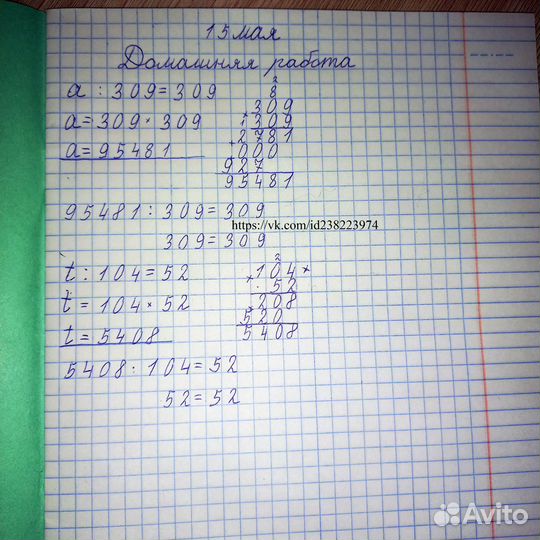 15 мая
Домашняя работа
a : 309 = 309
a = 309 · 309
a = 95481
2
8
309
× 309
2781
+ 000
927
95481
95481 : 309 = 309
https://vk.com/id238223974
309 = 309
t : 104 = 52
t = 104 × 52
t = 5408
2
× 104 ×
52
208
520
5408
5408 : 104 = 52
52 = 52
Avito